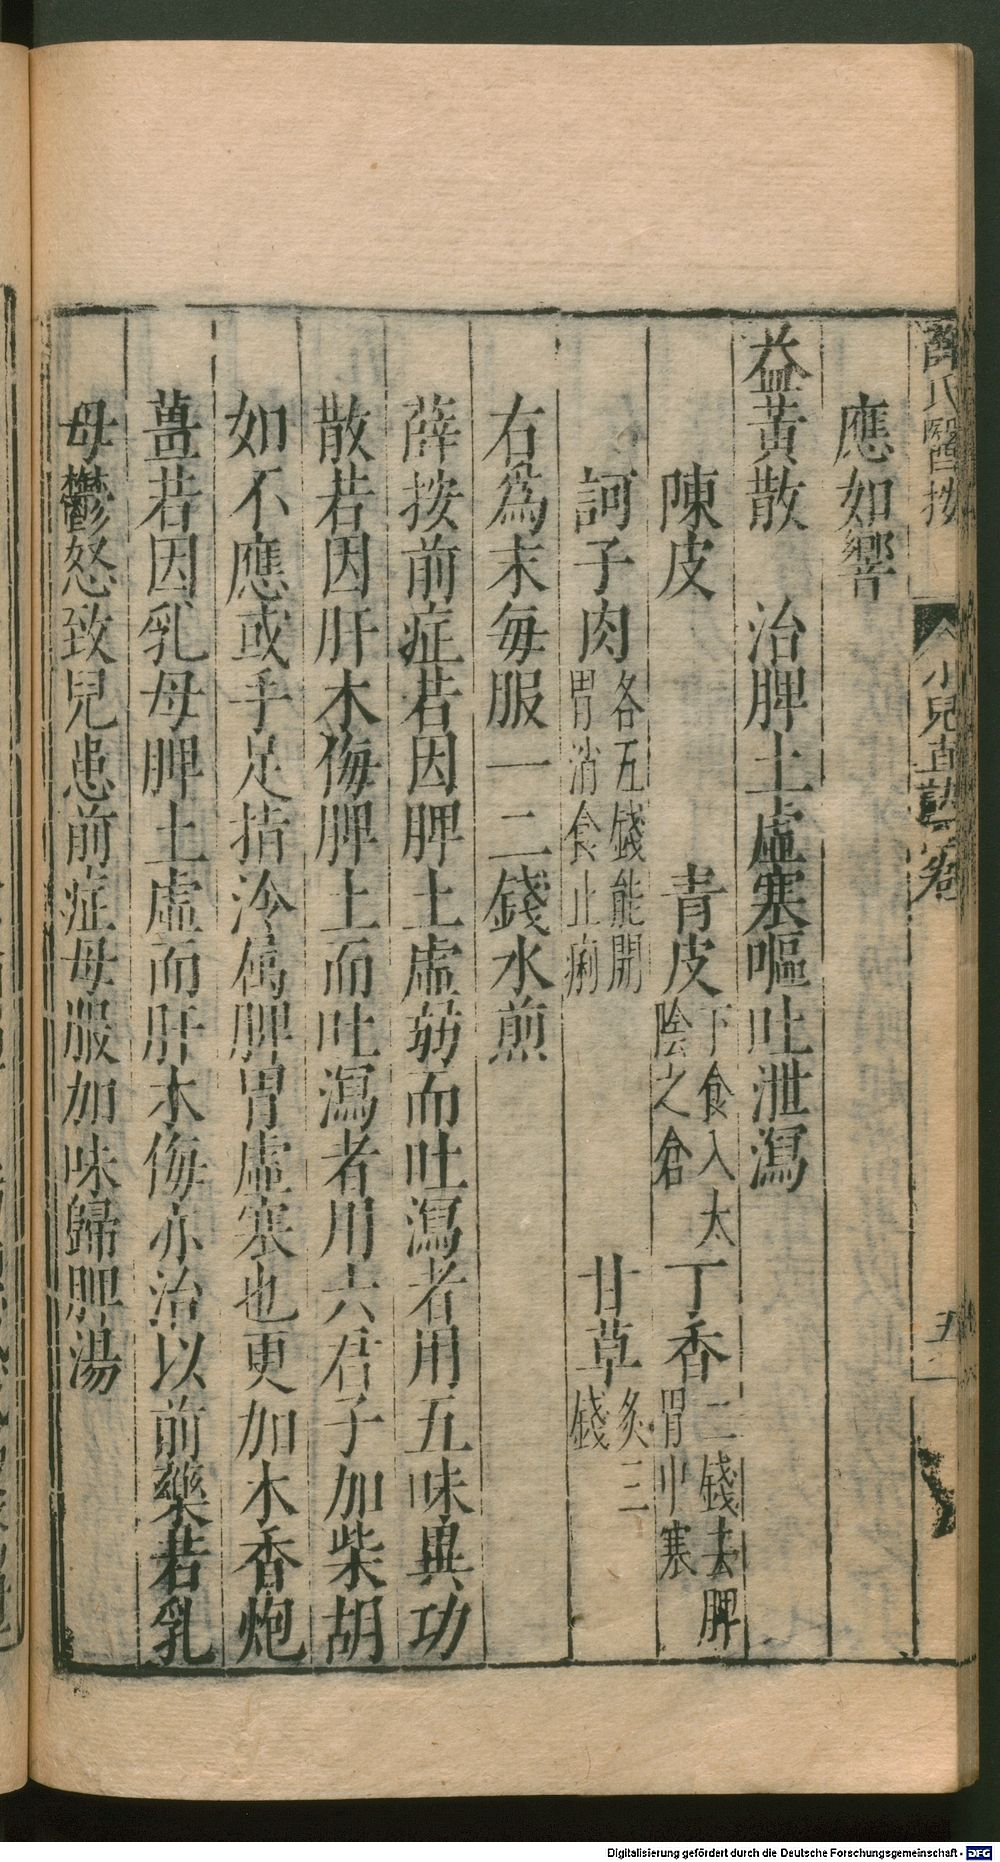 薛氏醫按
小兒直訣 卷
五
應如響
益黃散 治脾土虛寒嘔吐泄瀉
陳皮 青皮下食入太陰之倉 丁香二錢去脾胃中寒
訶子肉各五錢能開胃消食止痢 甘草炙三錢
右爲末每服一二錢水煎
薛按前症若因脾土虛弱而吐瀉者用五味異功
散若因肝木侮脾土而吐瀉者用六君子加柴胡
如不應或手足指冷屬脾胃虛寒也更加木香炮
薑若因乳母脾土虛而肝木侮亦治以前藥若乳
母鬱怒致兒患前症母服加味歸脾湯
Digitalisierung gefördert durch die Deutsche Forschungsgemeinschaft - DFG